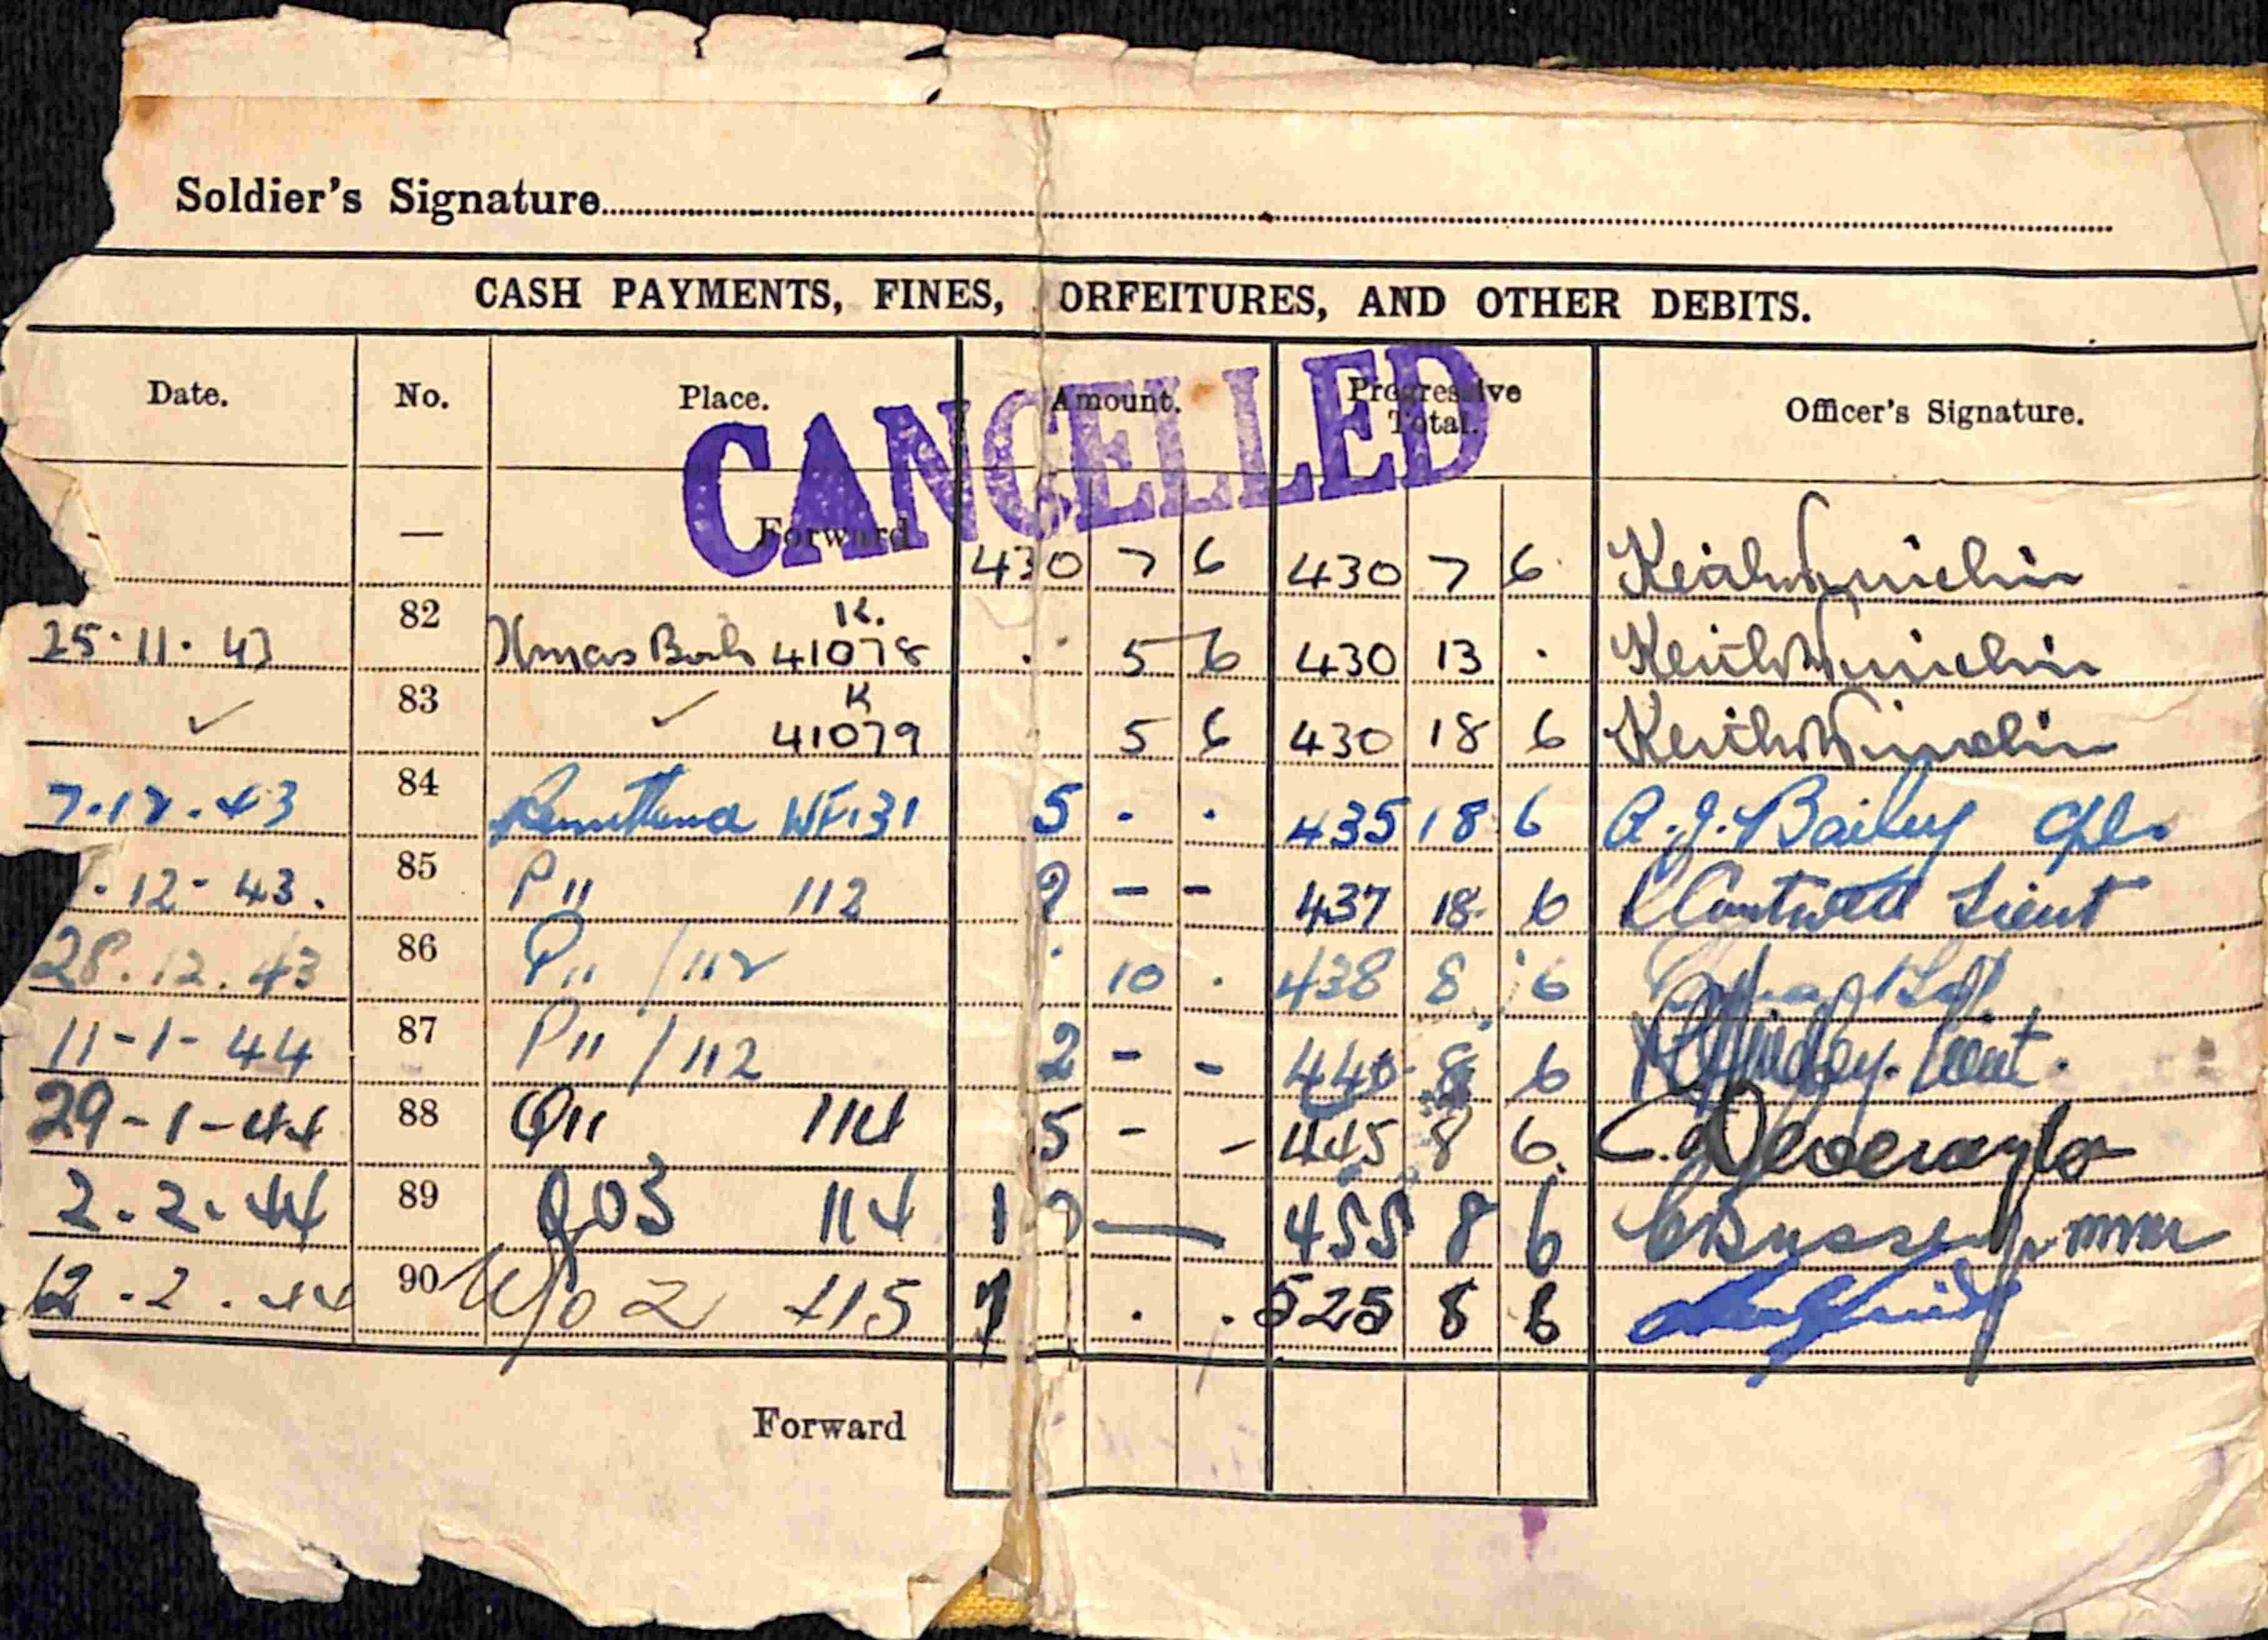 Soldier's Signature
CASH PAYMENTS, FINES, ORFEITURES, AND OTHER DEBITS.
Date. No. Place. Amount. Progressive Total. Officer's Signature.
CANCELLED
— Forward 430 7 6 430 7 6
25·11·43 82 Xmas K. 41078 · 5 6 430 13 ·
✓ 83 ✓ K 41079 5 6 430 18 6
7.12.43 84 WF 131 5 - · 435 18 6 A.J. Bailey Cpl.
·12-43. 85 P11 112 2 - - 437 18 6 Cantwell Lieut
28.12.43 86 P11 /112 · 10 · 438 8 6
11-1-44 87 P11 /112 2 - - 440 8 6 Lieut.
29-1-44 88 Q11 114 5 - - 445 8 6
2.2.44 89 Q03 114 1 — 455 8 6
12.2.44 90 115 7 · · 525 8 6
Forward